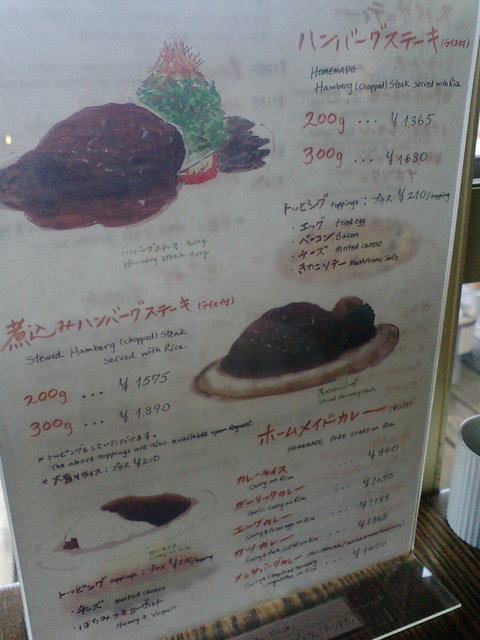 ハンバーグステーキ (ライス付)
HOMEMADE
Hamberg (chopped) Steak served with Rice
200g ... ¥1365
300g ... ¥1680
トッピング toppings : プラス ¥210/topping
・エッグ Fried egg
・ベーコン Bacon
・チーズ Melted cheese
・きのこソテー Mushrooms Saute
ハンバーグステーキ 200g
Hamberg steak 200g
煮込みハンバーグステーキ (ライス付)
Stewed Hamberg (chopped) Steak
served with Rice
200g ... ¥1575
300g ... ¥1890
*トッピングもしていただけます。
The above toppings are also available upon Request.
*大盛りライス : プラス ¥210
煮込ハンバーグ
ホームメイドカレー (ライス付)
HOMEMADE PORK CURRY on Rice
カレーライス ... ¥840
Curry on Rice
ガーリックカレー ... ¥1050
Garlic Curry on Rice
エッグカレー ... ¥1155
Curry & Fried egg on Rice
カツカレー ... ¥1365
Curry & Pork Cutlet on Rice
メンチハンバーグカレー
¥1470
カレーライス
Curry on Rice
トッピング toppings : プラス ¥210/topping
・チーズ Melted cheese
・はちみつ&ヨーグルト
Honey & Yogurt